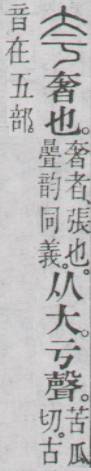 夸奢也。奢者、張也。曡韵同義。从大。亏聲。苦瓜切。古
音在五部。